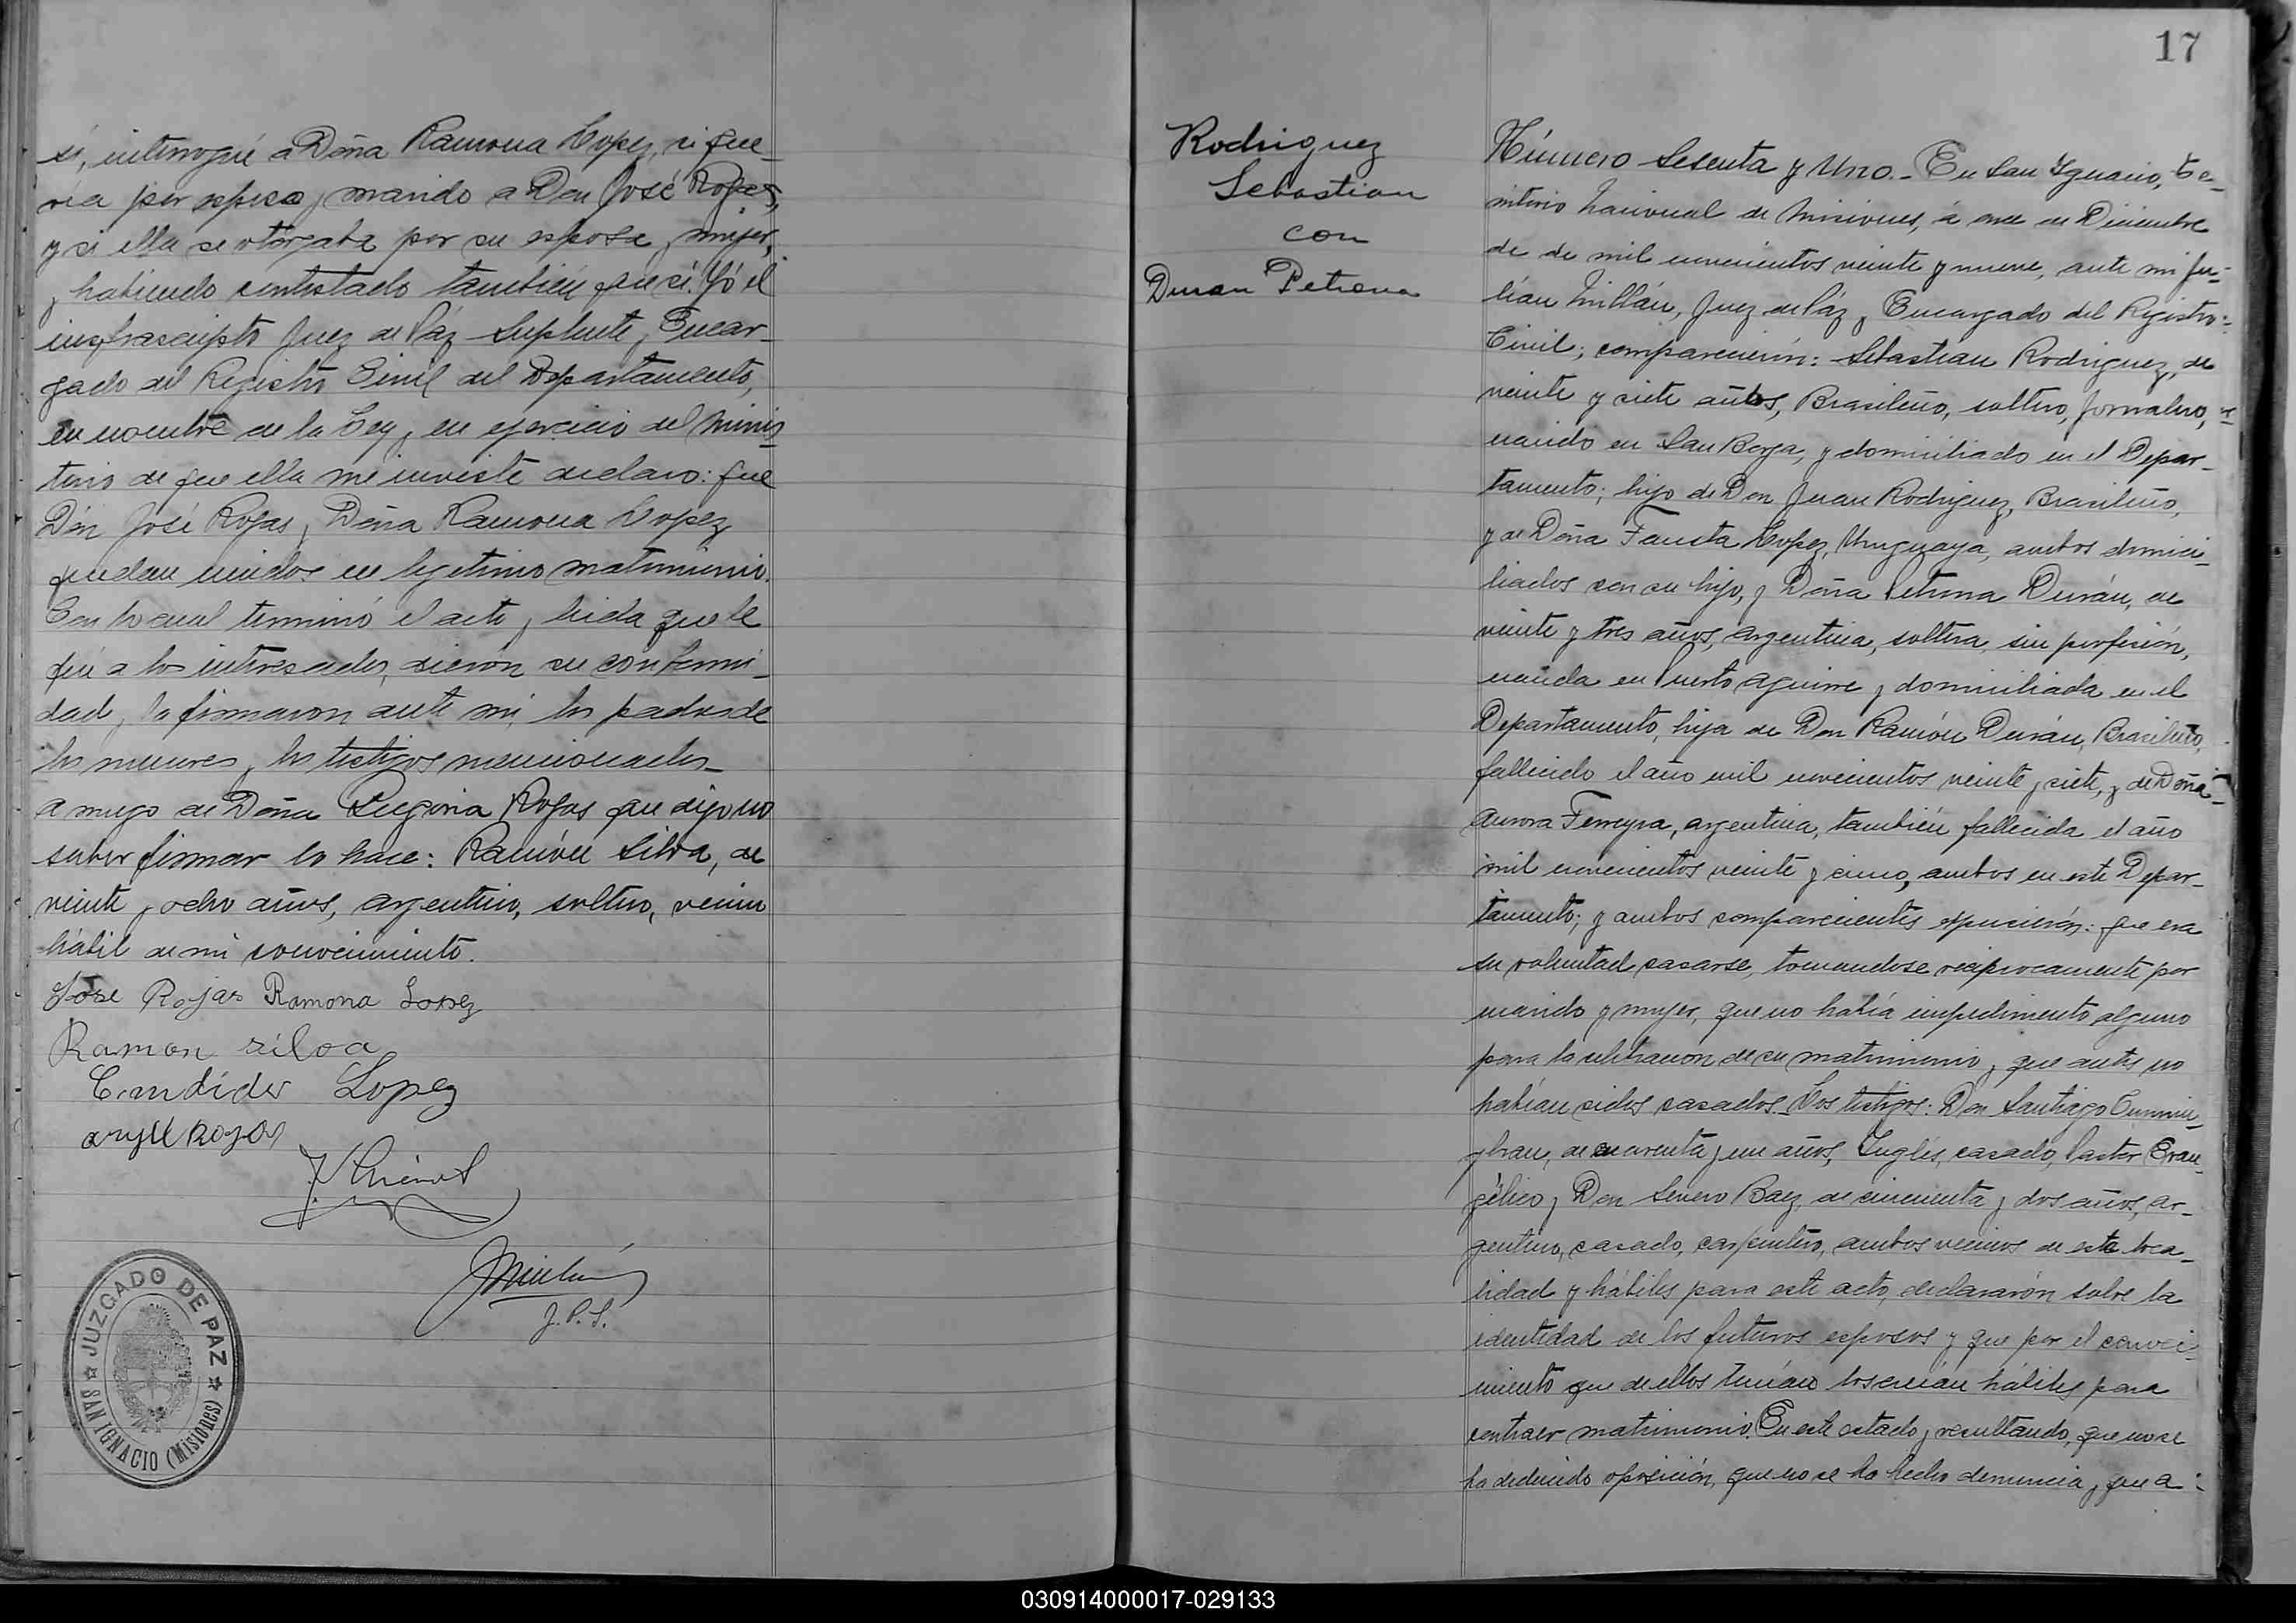 sí, interrogué a Doña Ramona Lopez, si que-
ría por esposo y marido a Don José Rojas,
y si ella se otorgaba por su esposa y mujer,
y habiendo contestado también que sí. Yó el
infrascripto Juez de Páz Suplente y Encar-
gado del Registro Civil del Departamento,
en nombre de la Ley y en ejercicio del Minis
terio de que ella me inviste declaro: que
Dón José Rojas y Doña Ramona Lopez
quedan unidos en legítimo matrimonio.
Con lo cual terminó el acto y leida que le
fué a los interesados, dieron su conformi-
dad y la firmaron ante mi, los padres de
los menores y los testigos mencionados-
a ruego de Doña Regina Rojas que dijo no
saber firmar lo hace: Ramón Silva, de
veinte y ocho años, argentino, soltero, vecino
hábil de mi conocimiento.
José Rojas Ramona Lopez
Ramon Silva
Candido Lopez
Rojas
J. P. S.
JUZGADO DE PAZ
SAN IGNACIO (Misiones)
17
Rodriguez
Sebastian
con
Duran Petrona
Número Sesenta y Uno.- En San Ygnacio, Te-
rritorio Nacional de Misiones, á once de Diciembre
de de mil novecientos veinte y nueve, ante mi Ju-
lián Millán, Juez de Páz y Encargado del Registro
Civil; comparecieron: Sebastian Rodriguez, de
veinte y siete años, Brasileño, soltero, jornalero,
nacido en San Borja, y domiciliado en el Depar-
tamento; hijo de Don Juan Rodriguez, Brasileño,
y de Doña Fausta Lopez, Uruguaya, ambos domici-
liados con su hijo, y Doña Petrona Durán, de
veinte y tres años, argentina, soltera, sin profesión,
nacida en Puerto Aguirre y domiciliada en el
Departamento, hija de Don Ramón Durán, Brasileño,
fallecido el año mil novecientos veinte y siete, y de Doña
Aurora Ferreyra, argentina, también fallecida el año
mil novecientos veinte y cinco, ambos en este Depar-
tamento; y ambos comparecientes expusieron: que era
su voluntad casarse, tomandose reciprocamente por
marido y mujer, que no había impedimento alguno
para la celebracion de su matrimonio y que antes no
habían sidos casados. Los testigos: Don Santiago Cunnin-
ghan, de cuarenta y un años, Inglés, casado, Pastor Evan-
gélico y Don Severo Baez, de cincuenta y dos años, ar-
gentino, casado, carpintero, ambos vecinos de esta loca-
lidad y hábiles para este acto, declararón sobre la
identidad de los futuros esposos y que por el conoci-
miento que de ellos tenían los creían hábiles para
contraer matrimonio. En este estado y resultando, que no se
ha deducido oposición, que no se ha hecho denuncia y que a
030914000017-029133